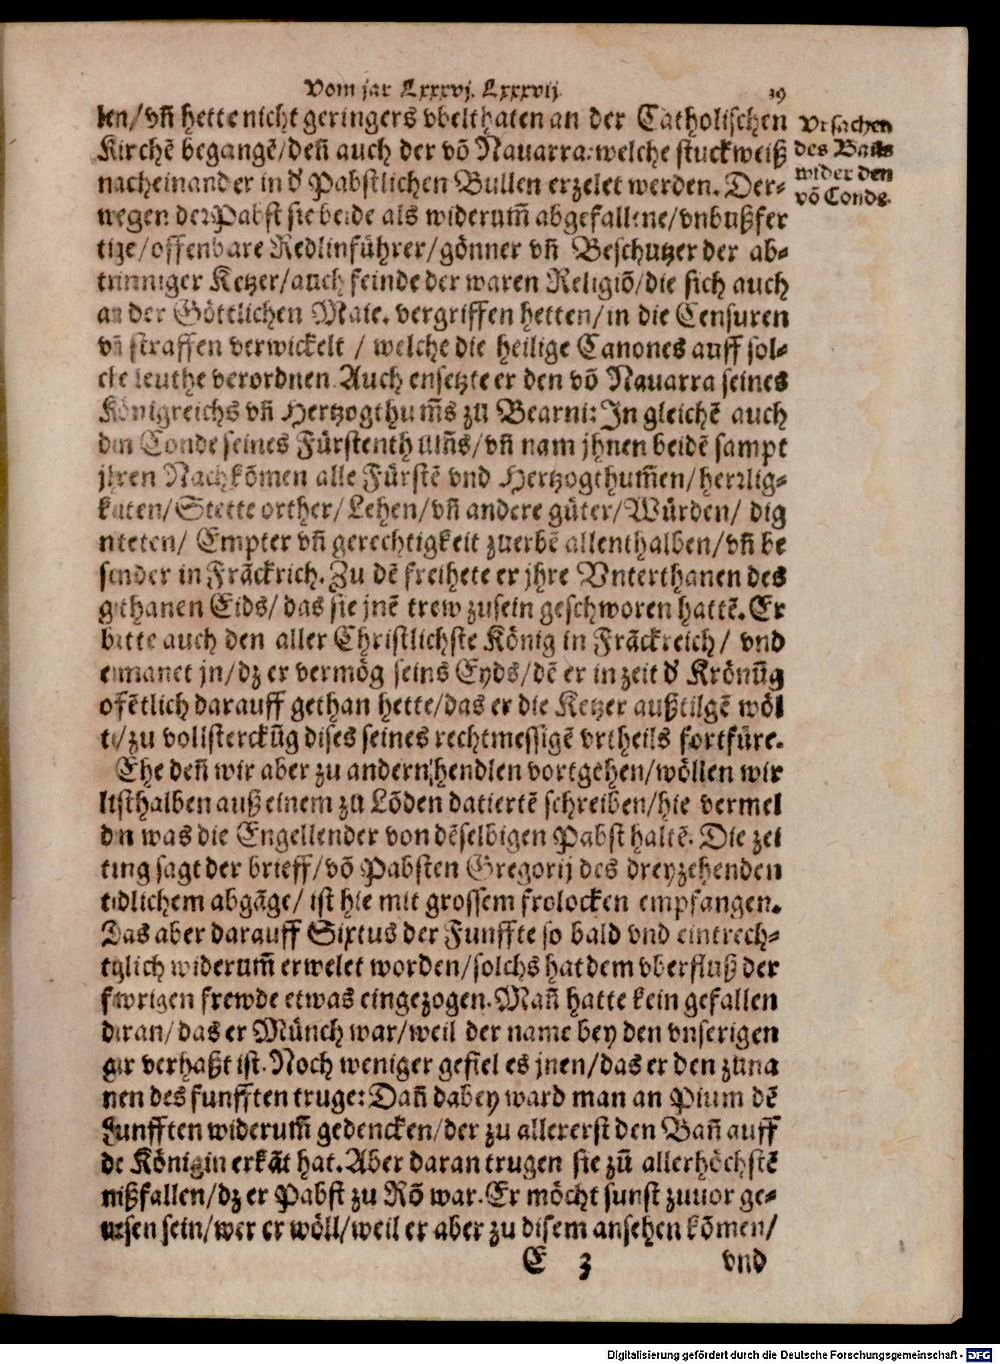 Vom jar Lxxxvj. Lxxxvij. 19
len/vñ hette nicht geringers vbelthaten an der Catholischen
Kirchē begangē/deñ auch der vō Nauarra: welche stuckweiß
nacheinander in d' Pabstlichen Bullen erzelet werden. Der-
wegen der Pabst sie beide als widerum̃ abgefallene/vnbußfer
tige/offenbare Redlinführer/gönner vñ Beschutzer der ab-
trinniger Ketzer/auch feinde der waren Religiō/die sich auch
an der Göttlichen Maie. vergriffen hetten/in die Censuren
vñ straffen verwickelt / welche die heilige Canones auff sol-
che leuthe verordnen. Auch ensetzte er den vō Nauarra seines
Königreichs vñ Hertzogthum̃s zu Bearni: In gleichē auch
den Conde seines Fürstenthum̃s/vñ nam jhnen beidē sampt
jhren Nachkōmen alle Fürstē vnd Hertzogthum̃en/herrlig-
kaiten/Stette orther/Lehen/vñ andere güter/Würden/ dig
niteten/ Empter vñ gerechtigkeit zuerbē allenthalben/vñ be
sonder in Frāckrich. Zu dē freihete er jhre Vnterthanen des
gethanen Eids/ das sie jnē trew zusein geschworen hattē. Er
bitte auch den aller Christlichste König in Frāckreich/ vnd
ermanet jn/dz er vermög seins Eyds/dē er in zeit d' Krönūg
offētlich darauff gethan hette/das er die Ketzer außtilgē wöl
te/zu vollsterckūg dises seines rechtmessigē vrtheils fortfüre.
Ehe deñ wir aber zu andern hendlen vortgehen/wöllen wir
listhalben auß einem zu Lōden datiertē schreiben/hie vermel
den was die Engellender von dēselbigen Pabst haltē. Die zei
tung sagt der brieff/vō Pabsten Gregorij des dreyzehenden
tödlichem abgāge/ ist hie mit grossem frolocken empfangen.
Das aber darauff Sixtus der Funffte so bald vnd eintrech-
tiglich widerum̃ erwelet worden/solchs hat dem vberfluß der
fworigen frewde etwas eingezogen. Mañ hatte kein gefallen
daran/das er Münch war/weil der name bey den vnserigen
gar verhaßt ist. Noch weniger gefiel es jnen/das er den zuna
men des funfften truge: Dañ dabey ward man an Pium dē
Funfften widerum̃ gedencken/der zu allererst den Bañ auff
die Königin erkāt hat. Aber daran trugen sie zū allerhöchstē
mißfallen/dz er Pabst zu Rō war. Er möcht sunst zuuor ge-
wesen sein/wer er wöll/weil er aber zu disem ansehen kōmen/
E 3 vnd
Vrsachen
des Bañs
wider den
vō Conde.
Digitalisierung gefördert durch die Deutsche Forschungsgemeinschaft - DFG